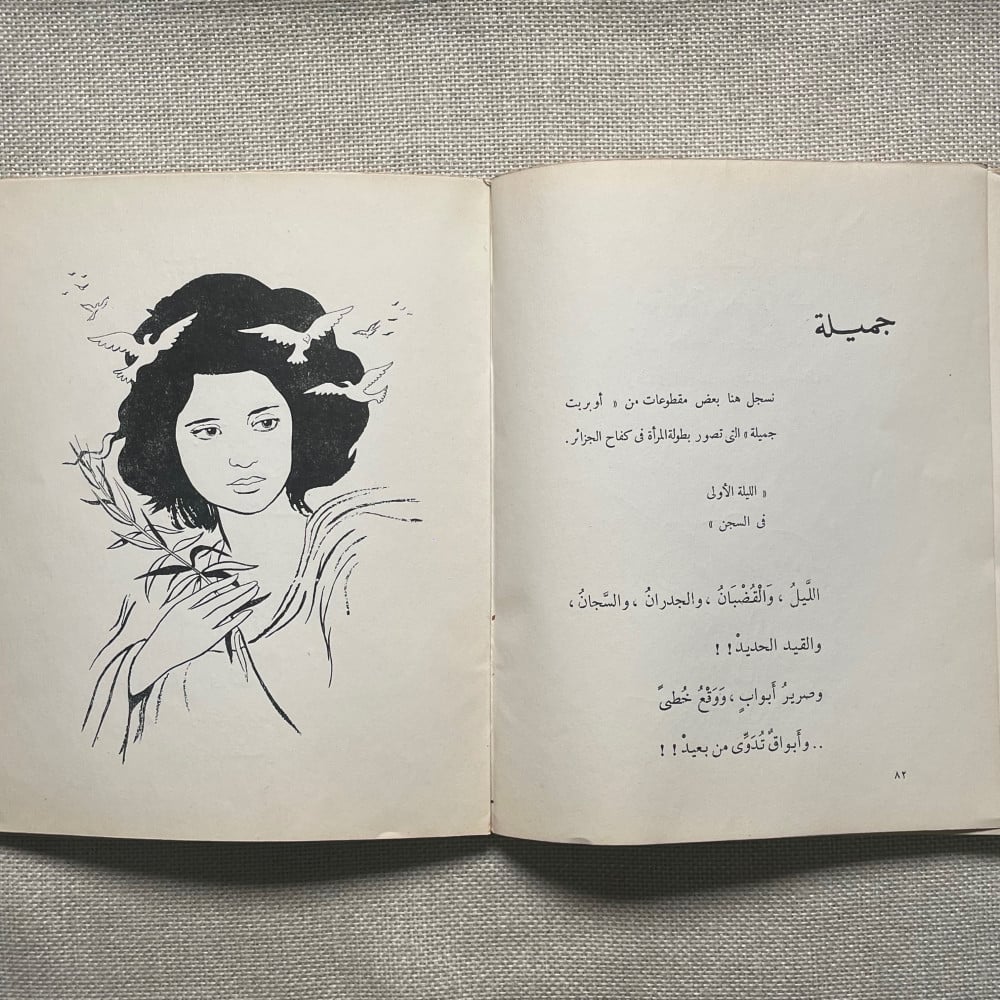 جميلة
نسجل هنا بعض مقطوعات من « أوبريت
جميلة » التى تصور بطولة المرأة فى كفاح الجزائر .
« الليلة الأولى
فى السجن »
اللَّيلُ ، وَالْقُضْبَانُ ، والجدرانُ ، والسَّجانُ ،
والقيد الحديدْ ! !
وصريرُ أَبوابٍ ، وَوَقْعُ خُطىً
.. وأَبواقٌ تُدَوِّى من بعيدْ ! !
٨٢